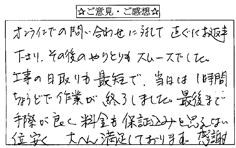 ☆ご意見・ご感想☆
オンラインでの問い合わせに対して直ぐにお返事
下さり、その後のやりとりもスムーズでした。
工事の日取りも最短で、当日は1時間
ちょうどで作業が終了しました。最後まで
手際が良く料金も保証込みと思えない
位安く大へん満足しております。感謝